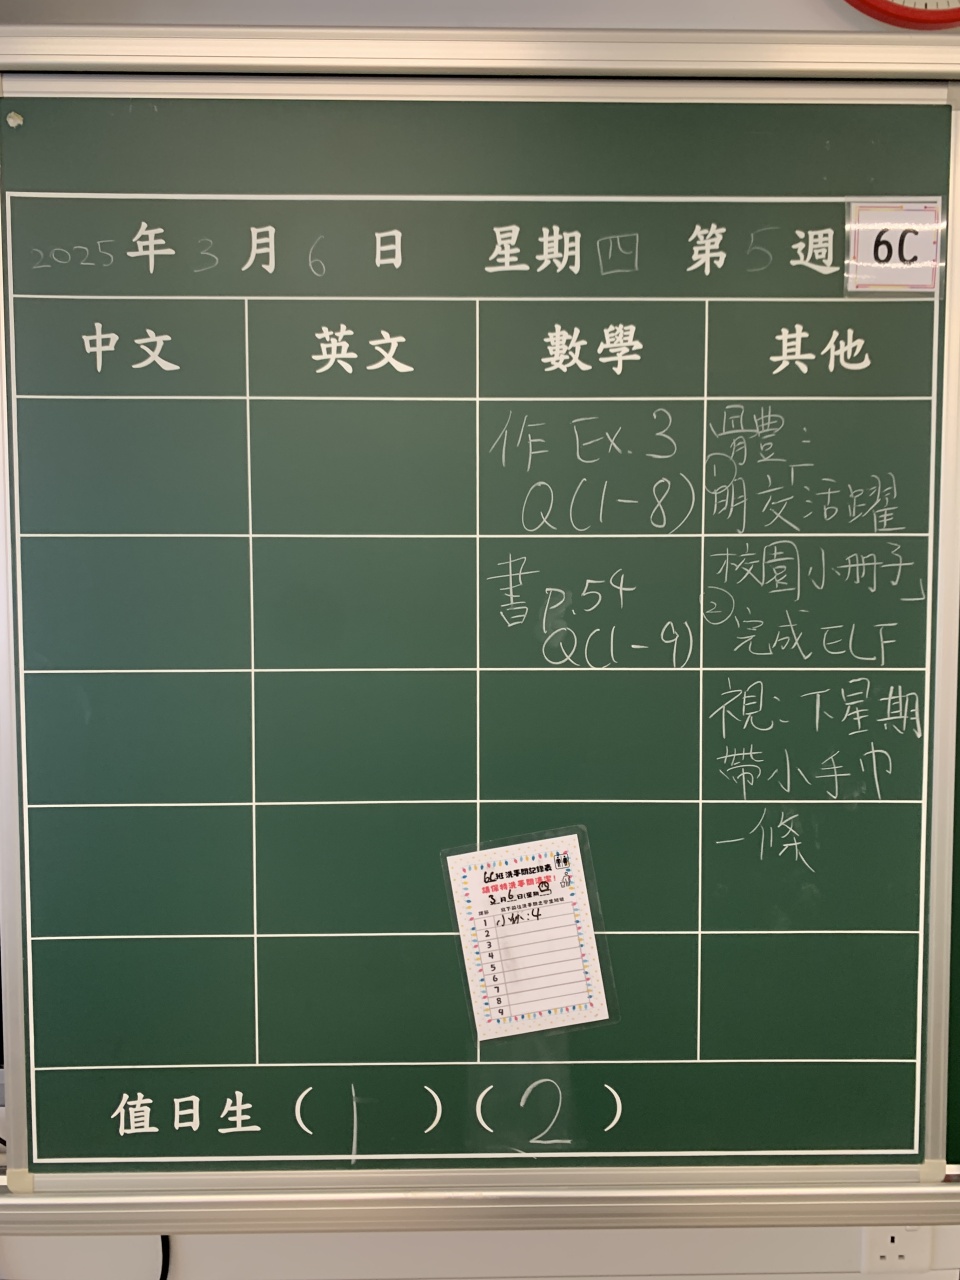 2025年3月6日 星期四 第5週 6C
中文 英文 數學 其他
作 Ex. 3
Q(1-8)
書 p.54
Q(1-9)
體:
①「明交活躍
校園小冊子」
②完成ELF
視:下星期
帶小手巾
一條
6C班洗手間記錄表
請保持洗手間清潔!
3月6日(星期四)
1 小林:4
2
3
4
5
6
7
8
9
值日生(1)(2)